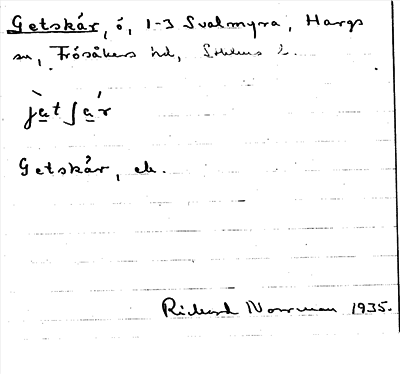 Getskár, ö, 1-3 Svalmyra, Hargs
sn, Frösåkers hd, Sthlms l.
jàtʃár
Getskår, ek.
Richard Norrman 1935.